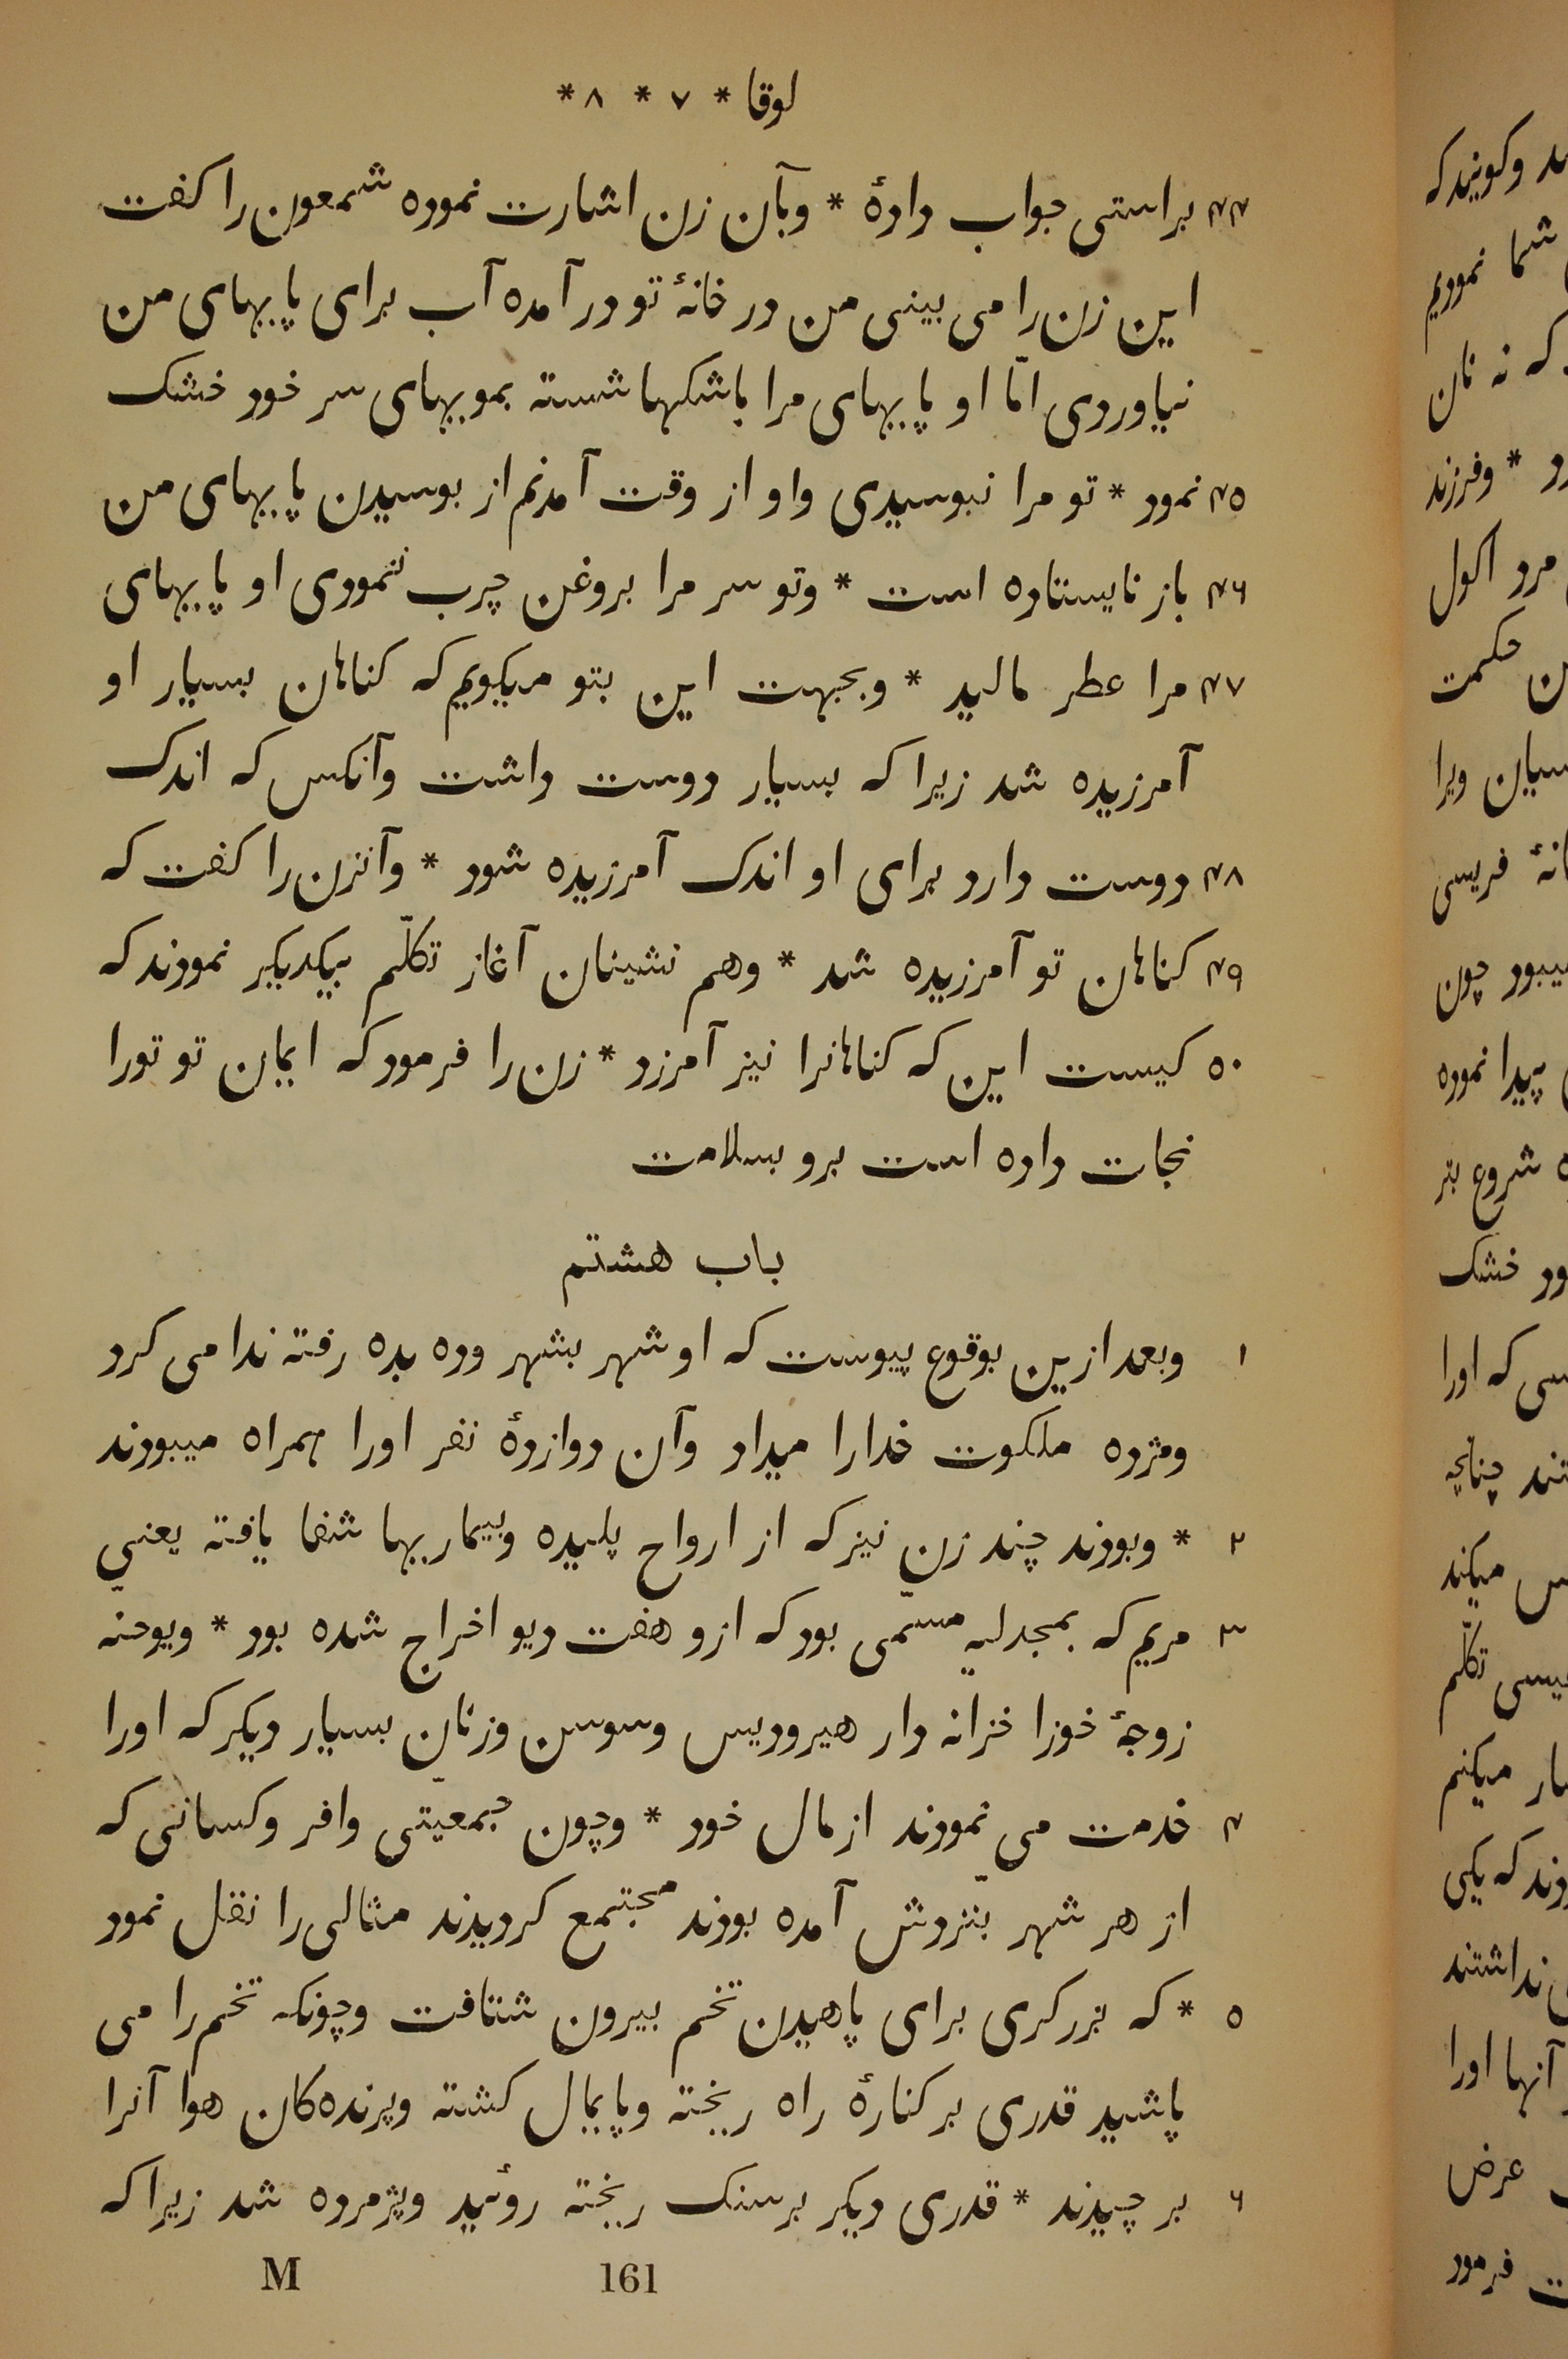 لوقا * ۷ * ۸ *
۴۴ براستی جواب دادهٔ * وبآن زن اشارت نموده شمعون را کفت
این زن را می بینی من در خانهٔ تو در آمده آب برای پایهای من
نیاوردی امّا او پایهای مرا باشکها شسته بمویهای سر خود خشک
۴۵ نمود * تو مرا نبوسیدی واو از وقت آمدنم از بوسیدن پایهای من
۴۶ باز نایستاده است * وتو سر مرا بروغن چرب ننمودی او پایهای
۴۷ مرا عطر مالید * وبجهت این بتو میکویم که کناهان بسیار او
آمرزیده شد زیرا که بسیار دوست داشت وآنکس که اندک
۴۸ دوست دارد برای او اندک آمرزیده شود * وآنزن را کفت که
۴۹ کناهان تو آمرزیده شد * وهم نشینان آغاز تکلّم بیکدیکر نمودند که
۵۰ کیست این که کناهانرا نیز آمرزد * زن را فرمود که ایمان تو تورا
نجات داده است برو بسلامت
باب هشتم
۱ وبعد ازین بوقوع پیوست که او شهر بشهر وده بده رفته ندا می کرد
ومژده ملکوت خدارا میداد وآن دوازدهٔ نفر اورا همراه میبودند
۲ * وبودند چند زن نیز که از ارواح پلیده وبیماریها شفا یافته یعنی
۳ مریم که بمجدلیه مسمّی بود که ازو هفت دیو اخراج شده بود * ویوحنّه
زوجهٔ خوزا خزانه دار هیرودیس وسوسن وزنان بسیار دیکر که اورا
۴ خدمت می نمودند از مال خود * وچون جمعیّتی وافر وکسانی که
از هر شهر بنزدش آمده بودند مجتمع کردیدند مثالی را نقل نمود
۵ * که بزرکری برای پاهیدن تخم بیرون شتافت وچونکه تخم را می
پاشید قدری بر کنارهٔ راه ریخته وپایمال کشته وپرنده‌کان هوا آنرا
۶ بر چیدند * قدری دیکر بر سنک ریخته روئید وپژمرده شد زیرا که
M 161